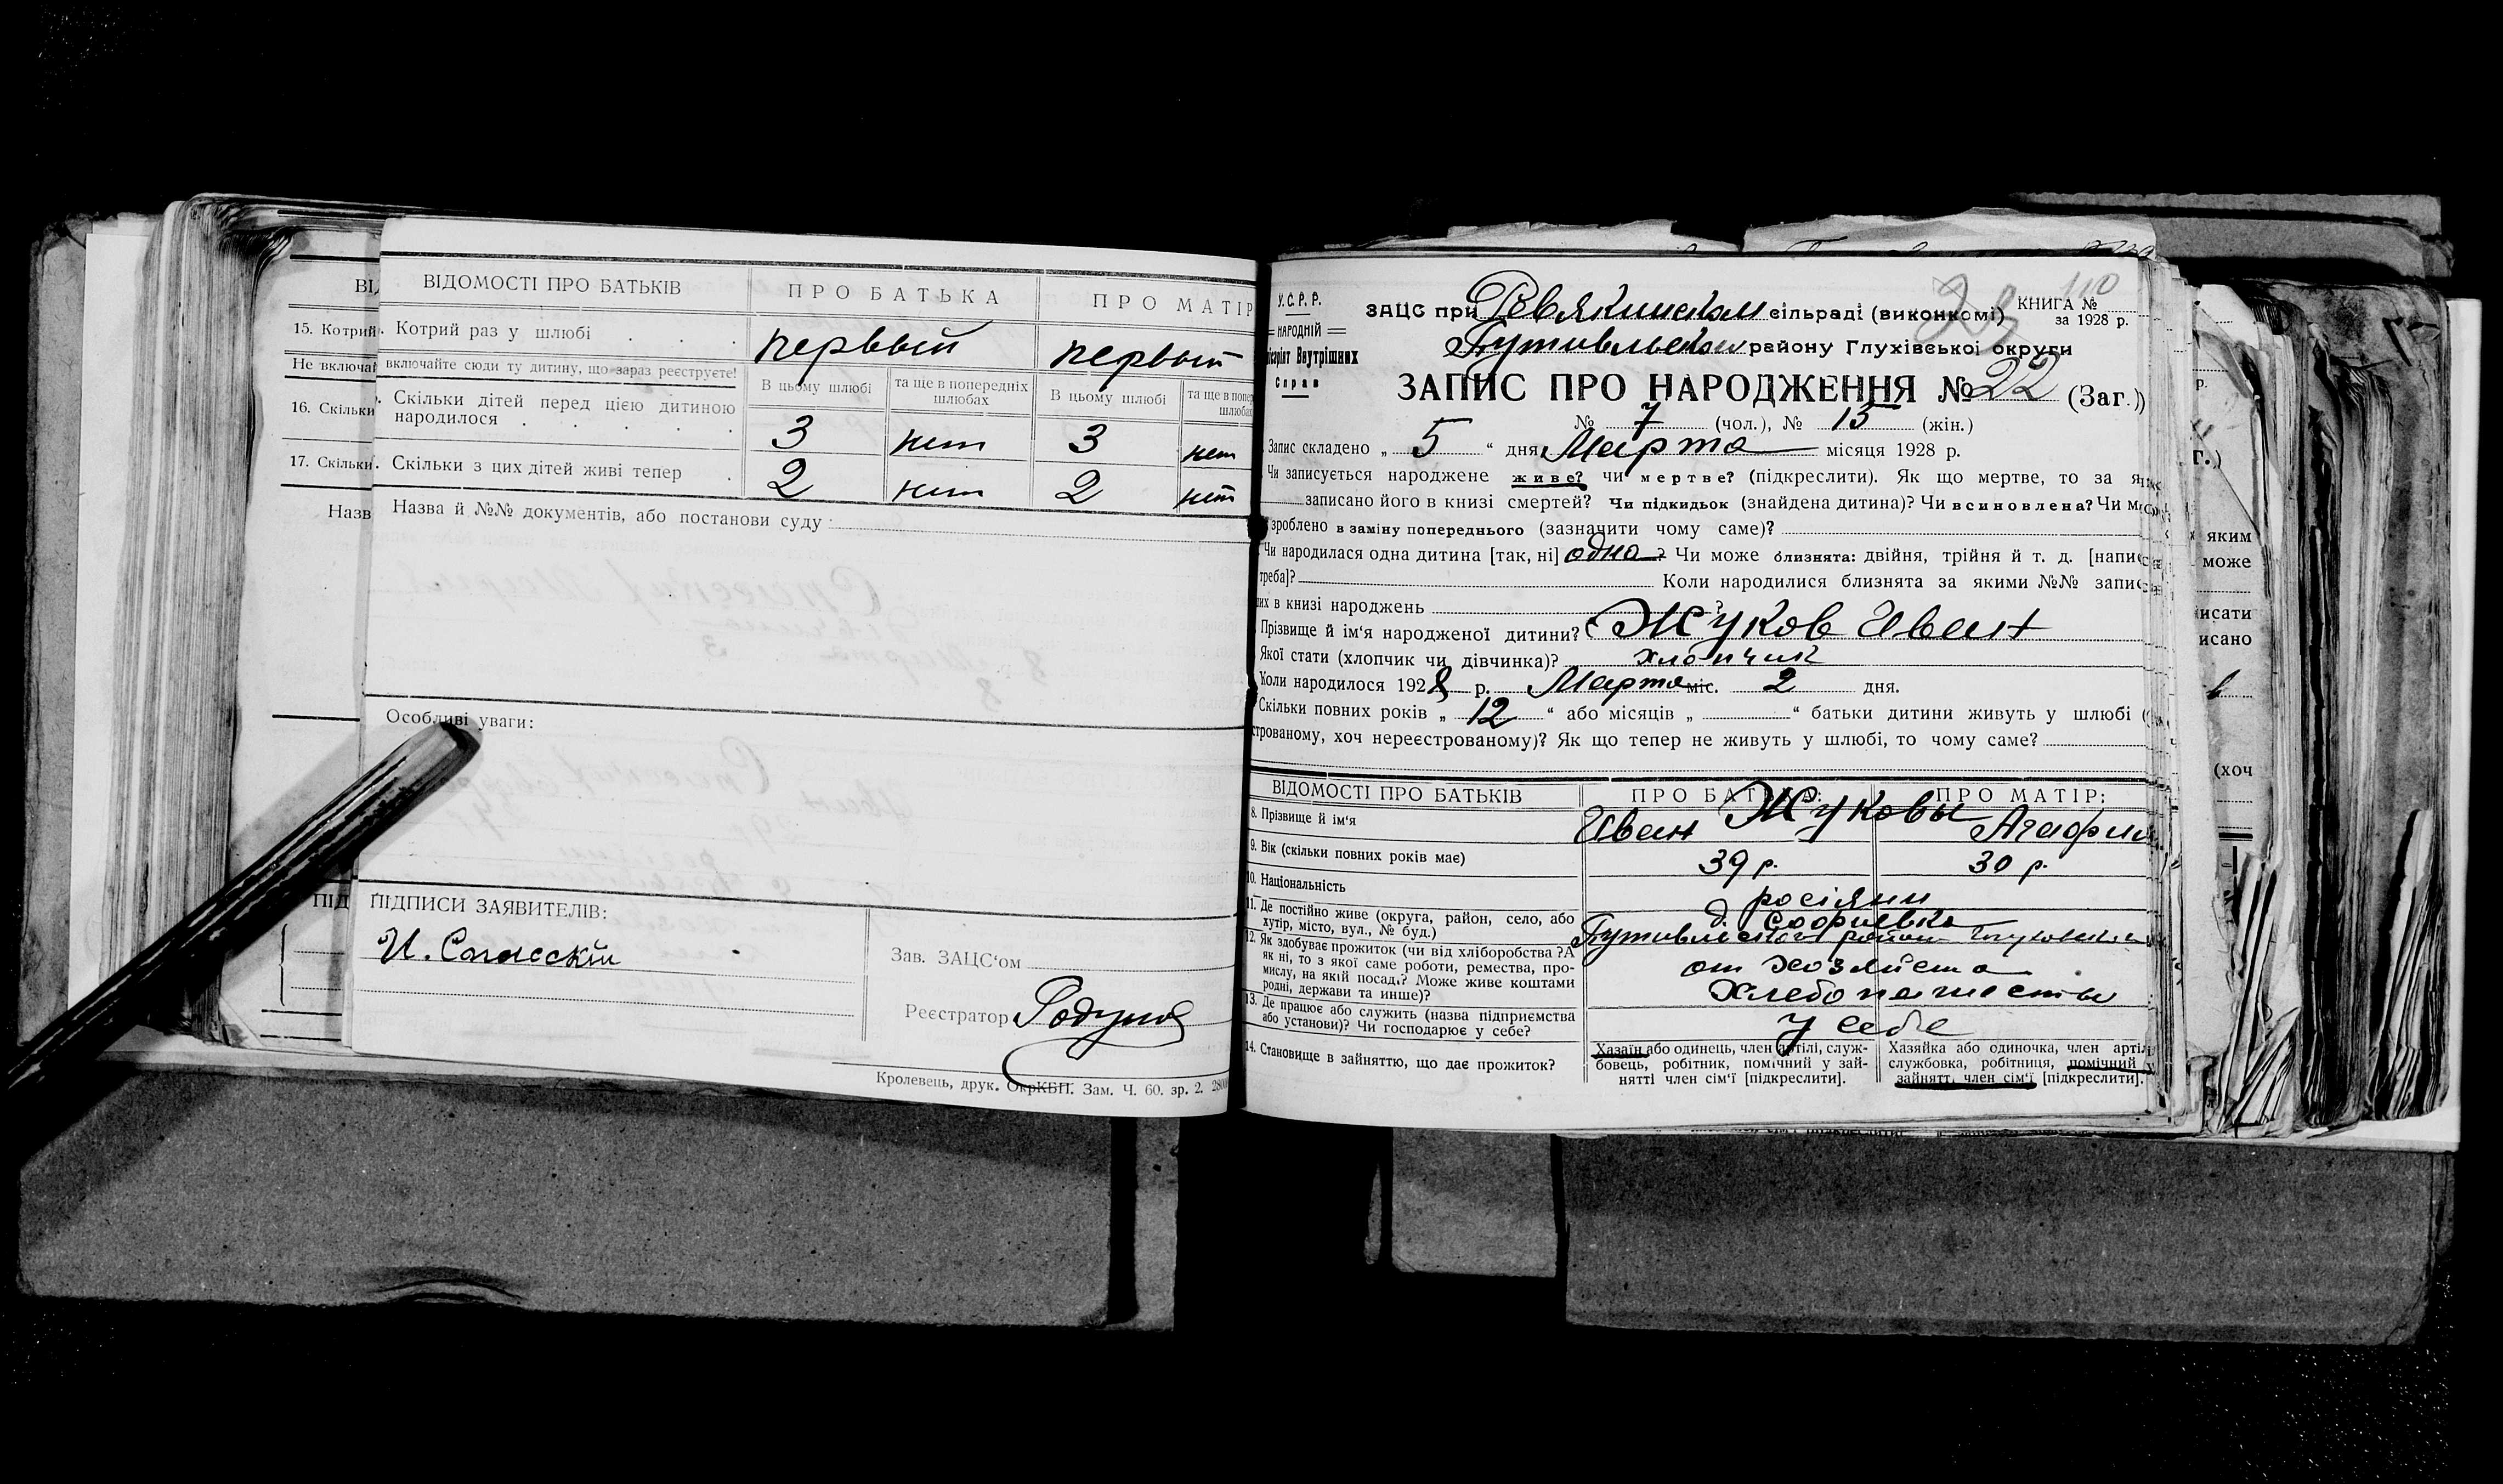 ВІДОМОСТІ ПРО БАТЬКІВ ПРО БАТЬКА ПРО МАТІР
15. Котрий
Котрий раз у шлюбі первый первый
Не включай
включайте сюди ту дитину, що зараз реєструєте! В цьому шлюбі та ще в попередніх шлюбах В цьому шлюбі та ще в попер шлюбах
16. Скільки
Скільки дітей перед цією дитиною
народилося 3 нет 3 нет
17. Скільки
Скільки з цих дітей живі тепер 2 нет 2 нет
Назв
Назва й №№ документів, або постанови суду:
Особливі уваги:
ПІД
ПІДПИСИ ЗАЯВИТЕЛІВ:
Зав. ЗАЦС'ом
Реєстратор
Кролевець, друк. ОкрКБП. Зам. Ч. 60. зр. 2.
У.С.Р.Р.
НАРОДНІЙ
Внутрішних
Справ
ЗАЦС при Ревякинском сільраді (виконкомі) КНИГА №
за 1928 р.
110
Путивльськом району Глухівської округи
ЗАПИС ПРО НАРОДЖЕННЯ № 22 (Заг.)
№ 7 (чол.), № 15 (жін.)
Запис складено „ 5 “ дня Марта місяця 1928 р.
Чи записується народжене живе? чи мертве? (підкреслити). Як що мертве, то за як
записано його в книзі смертей? Чи підкидьок (знайдена дитина)? Чи всиновлена? Чи
зроблено в заміну попереднього (зазначити чому саме)?
Чи народилася одна дитина [так, ні] одна? Чи може близнята: двійня, трійня й т. д. [напис
треба]? Коли народилися близнята за якими №№ запис
их в книзі народжень ?
Прізвище й ім'я народженої дитини? Жуков Иван
Якої стати (хлопчик чи дівчинка)? хлопчик
Коли народилося 1928 р. Марта міс. 2 дня.
Скільки повних років „ 12 “ або місяців „ “ батьки дитини живуть у шлюбі (
строваному, хоч нереєстрованому)? Як що тепер не живуть у шлюбі, то чому саме?
ВІДОМОСТІ ПРО БАТЬКІВ ПРО БАТЬКА: ПРО МАТІР:
8. Прізвище й ім'я Иван Жуковы Агафия
9. Вік (скільки повних років має) 39 р. 30 р.
10. Національність росіяни
11. Де постійно живе (округа, район, село, або
хутір, місто, вул., № буд.) д. Софиевка
Путивльского район
12. Як здобуває прожиток (чи від хліборобства? А
як ні, то з якої саме роботи, ремества, про-
мислу, на якій посаді? Може живе коштами
родні, держави та инше)? от хозяйства
Хлебопашества
13. Де працює або служить (назва підприємства
або установи)? Чи господарює у себе? у себе
14. Становище в зайняттю, що дає прожиток?
Хазяїн або одинець, член артілі, служ-
бовець, робітник, помічний у зай-
нятті член сім'ї [підкреслити].
Хазяйка або одиночка, член артіл
службовка, робітниця, помічний у
зайнятт. член сім'ї [підкреслити].
яким
може
исати
исано
(хоч